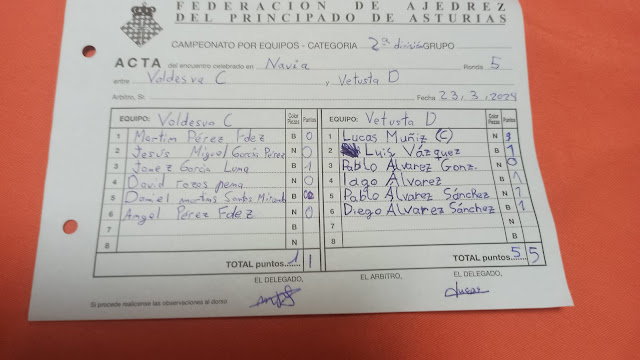 FEDERACION DE AJEDREZ
DEL PRINCIPADO DE ASTURIAS
CAMPEONATO POR EQUIPOS - CATEGORIA 2ª división GRUPO
ACTA del encuentro celebrado en Navia Ronda 5
entre Valdesva C y Vetusta D
Arbitro, Sr. Fecha 23, 3, 2024
EQUIPO: Valdesva C Color Piezas Puntos
1 Martim Pérez Fdez B 0
2 Jesús Miguel García Pérez N 0
3 Janez García Luna B 1
4 David rozos pema N 0
5 Daniel martins Santos Miranda B
6 Angel Pérez Fdez N 0
7 B
8 N
TOTAL puntos...... 1 1
EQUIPO: Vetusta D Color Piezas Puntos
1 Lucas Muñiz (C) N
2 Luis Vázquez B 1
3 Pablo Álvarez Gonz. N 0
4 Iago Álvarez B 1
5 Pablo Álvarez Sánchez N 1
6 Diego Álvarez Sánchez B 1
7 N
8 B
TOTAL puntos...... 5 5
EL DELEGADO, EL ARBITRO, EL DELEGADO,
Lucas
Si procede realicense las observaciones al dorso